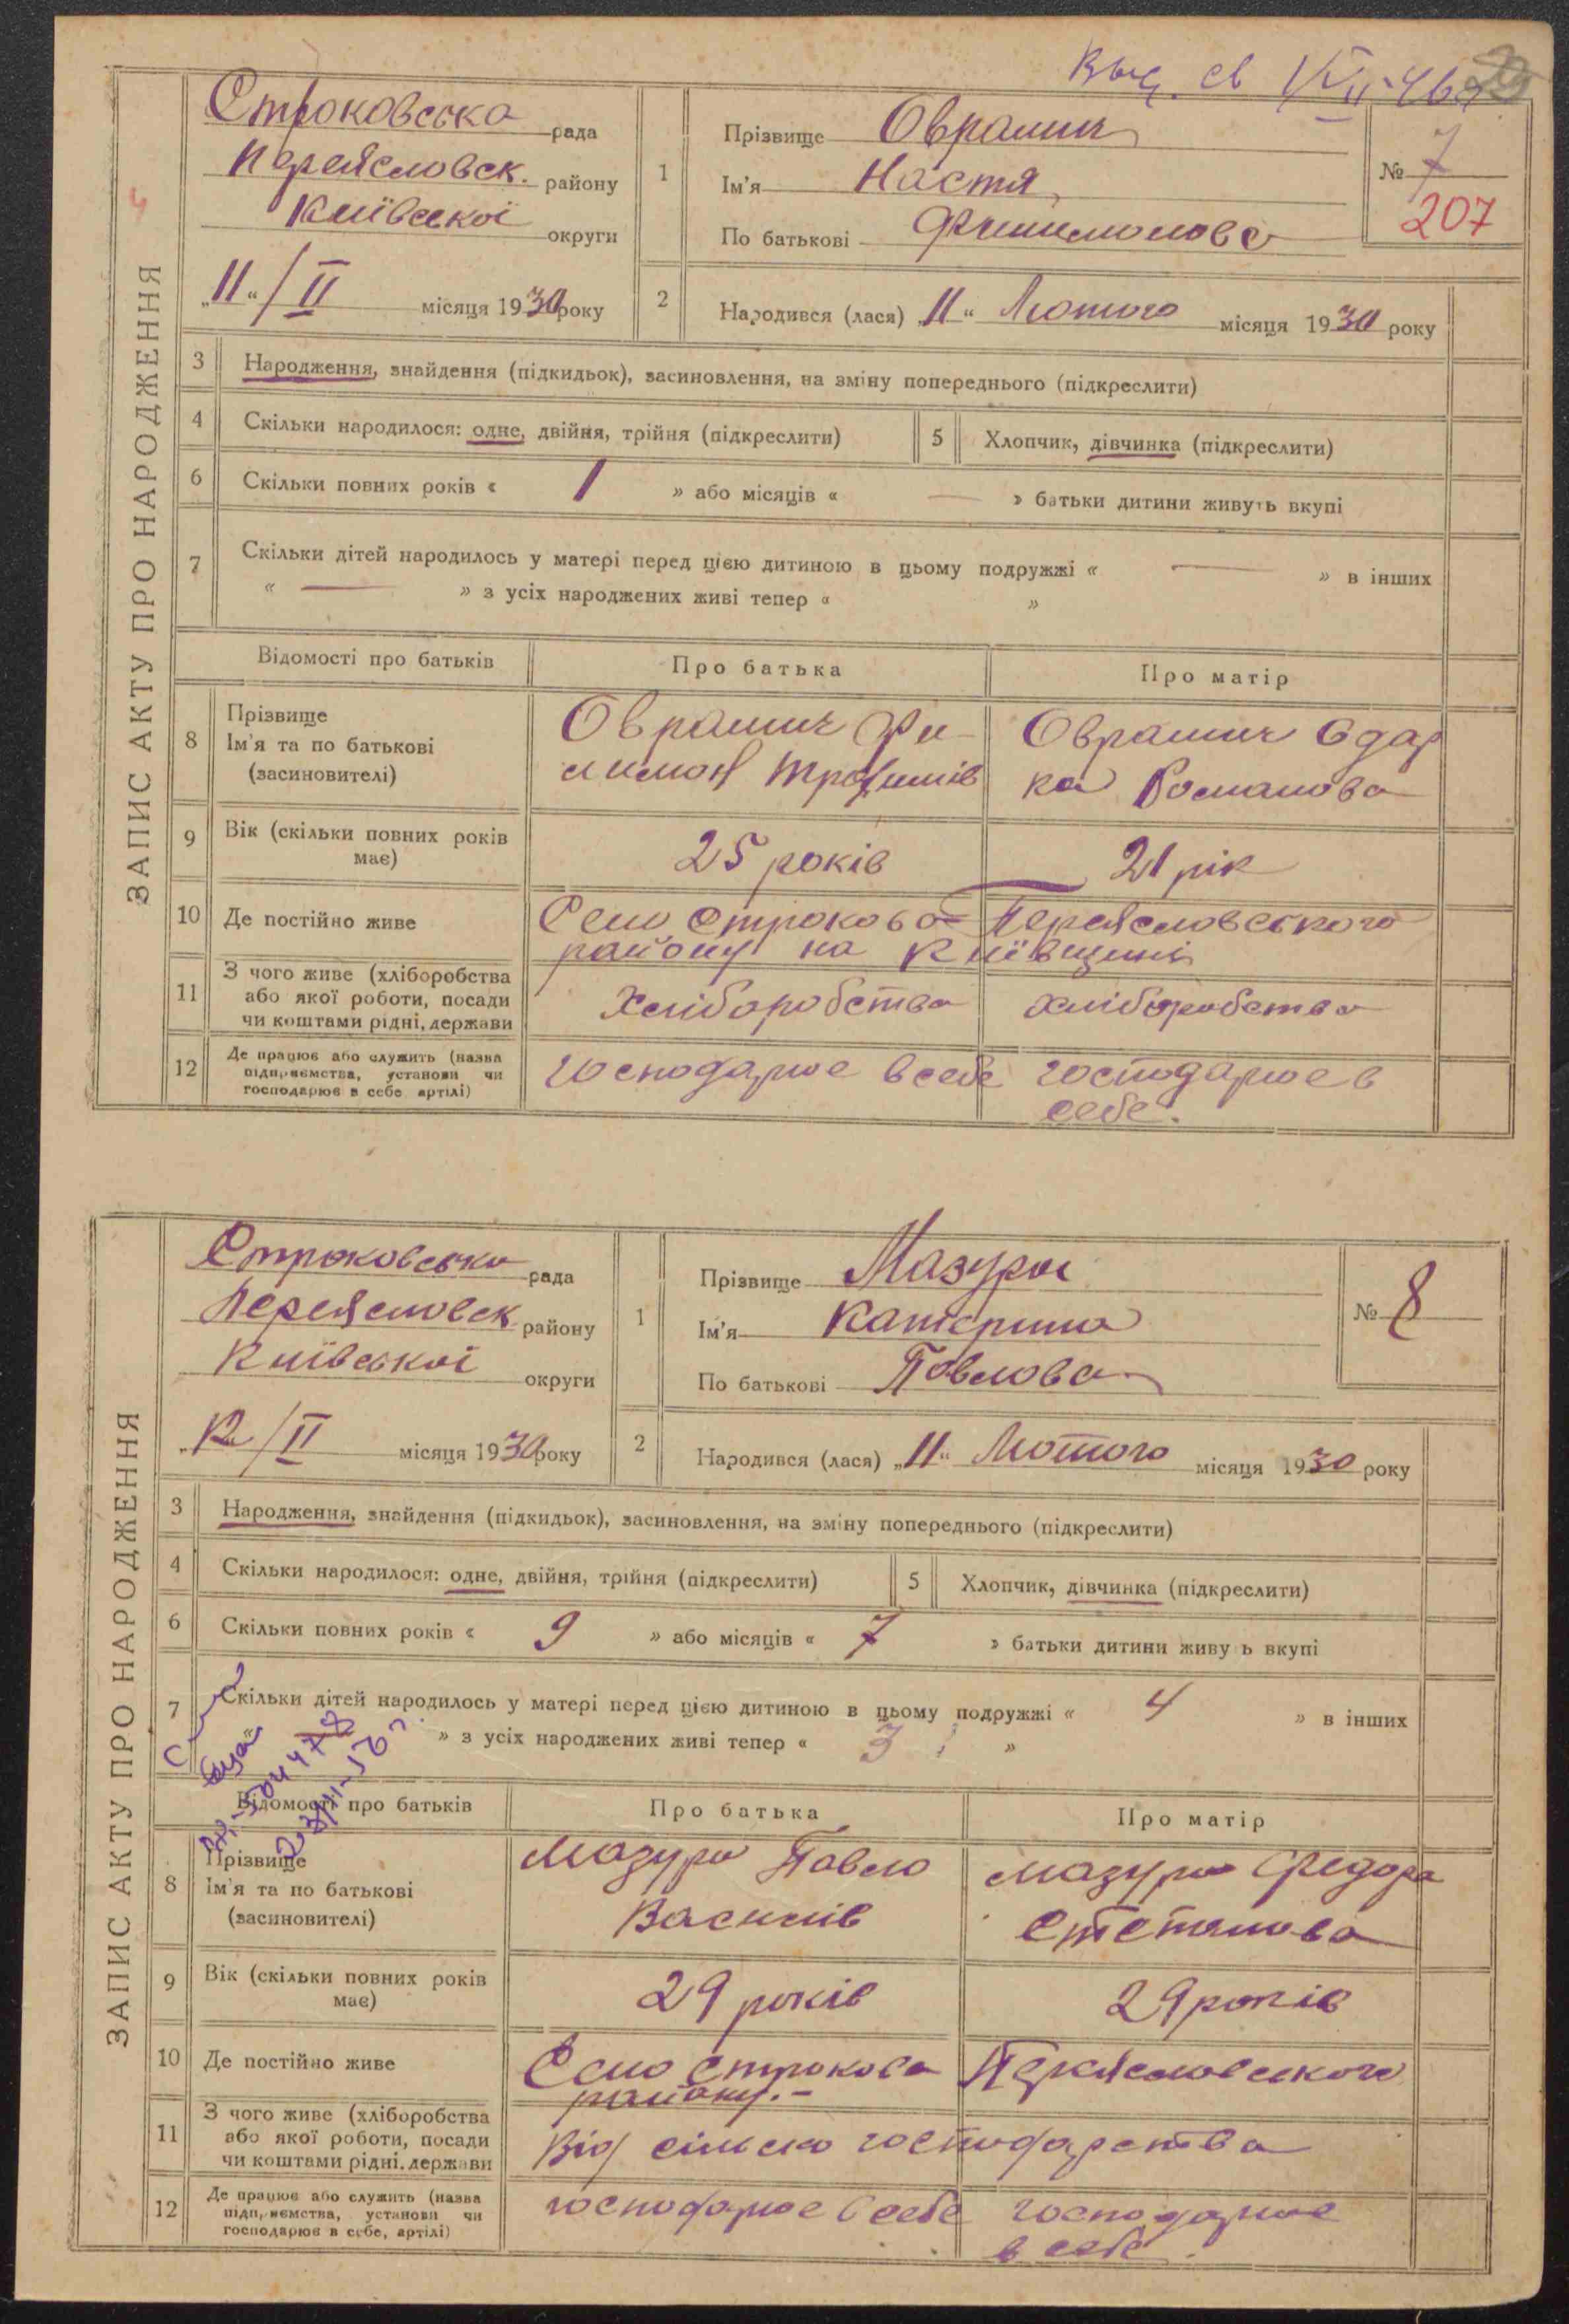 Выд. св
207
ЗАПИС АКТУ ПРО НАРОДЖЕННЯ
Строковська рада
Переясловск. району
Київської округи
„11“/II місяця 1930 року
1
Прізвище Оврашич
Ім'я Настя
По батькові Филимонова
№ 7
2
Народився (лася) „11“ Лютого місяця 1930 року
3 Народження, знайдення (підкидьок), засиновлення, на зміну попереднього (підкреслити)
4 Скільки народилося: одне, двійня, трійня (підкреслити) 5 Хлопчик, дівчинка (підкреслити)
6 Скільки повних років « 1 » або місяців « — » батьки дитини живуть вкупі
7 Скільки дітей народилось у матері перед цією дитиною в цьому подружжі « — » в інших
« — » з усіх народжених живі тепер « »
Відомості про батьків Про батька Про матір
8 Прізвище
Ім'я та по батькові
(засиновителі)
Оврашич Фи-
лимон Трофимів
Оврашич Одар
ка Романова
9 Вік (скільки повних років
має)
25 років 21 рік
10 Де постійно живе Село Строкова Переясловського
району на Київщині
11 З чого живе (хліборобства
або якої роботи, посади
чи коштами рідні, держави
Хліборобства хліборобства
12 Де працює або служить (назва
підприємства, установи чи
господарює в себе артілі)
господарює в себе господарює в
себе.
ЗАПИС АКТУ ПРО НАРОДЖЕННЯ
Строковська рада
Переясловск району
Київської округи
„12/II місяця 1930 року
1
Прізвище Мазура
Ім'я Катерина
По батькові Повлова
№ 8
2
Народився (лася) „11“ Лютого місяця 1930 року
3 Народження, знайдення (підкидьок), засиновлення, на зміну попереднього (підкреслити)
4 Скільки народилося: одне, двійня, трійня (підкреслити) 5 Хлопчик, дівчинка (підкреслити)
6 Скільки повних років « 9 » або місяців « 7 » батьки дитини живу ь вкупі
7 Скільки дітей народилось у матері перед цією дитиною в цьому подружжі « 4 » в інших
« » з усіх народжених живі тепер « 3 »
Відомості про батьків Про батька Про матір
8 Прізвище
Ім'я та по батькові
(засиновителі)
Мазура Павло
Василів
Мазура Федора
Степанова
9 Вік (скільки повних років
має)
29 років 29 років
10 Де постійно живе Село Строкова Переясловського
району.-
11 З чого живе (хліборобства
або якої роботи, посади
чи коштами рідні, держави
Від сільско господарства
12 Де працює або служить (назва
підприємства, установи чи
господарює в себе, артілі)
господарює в себе господарює
в себе.